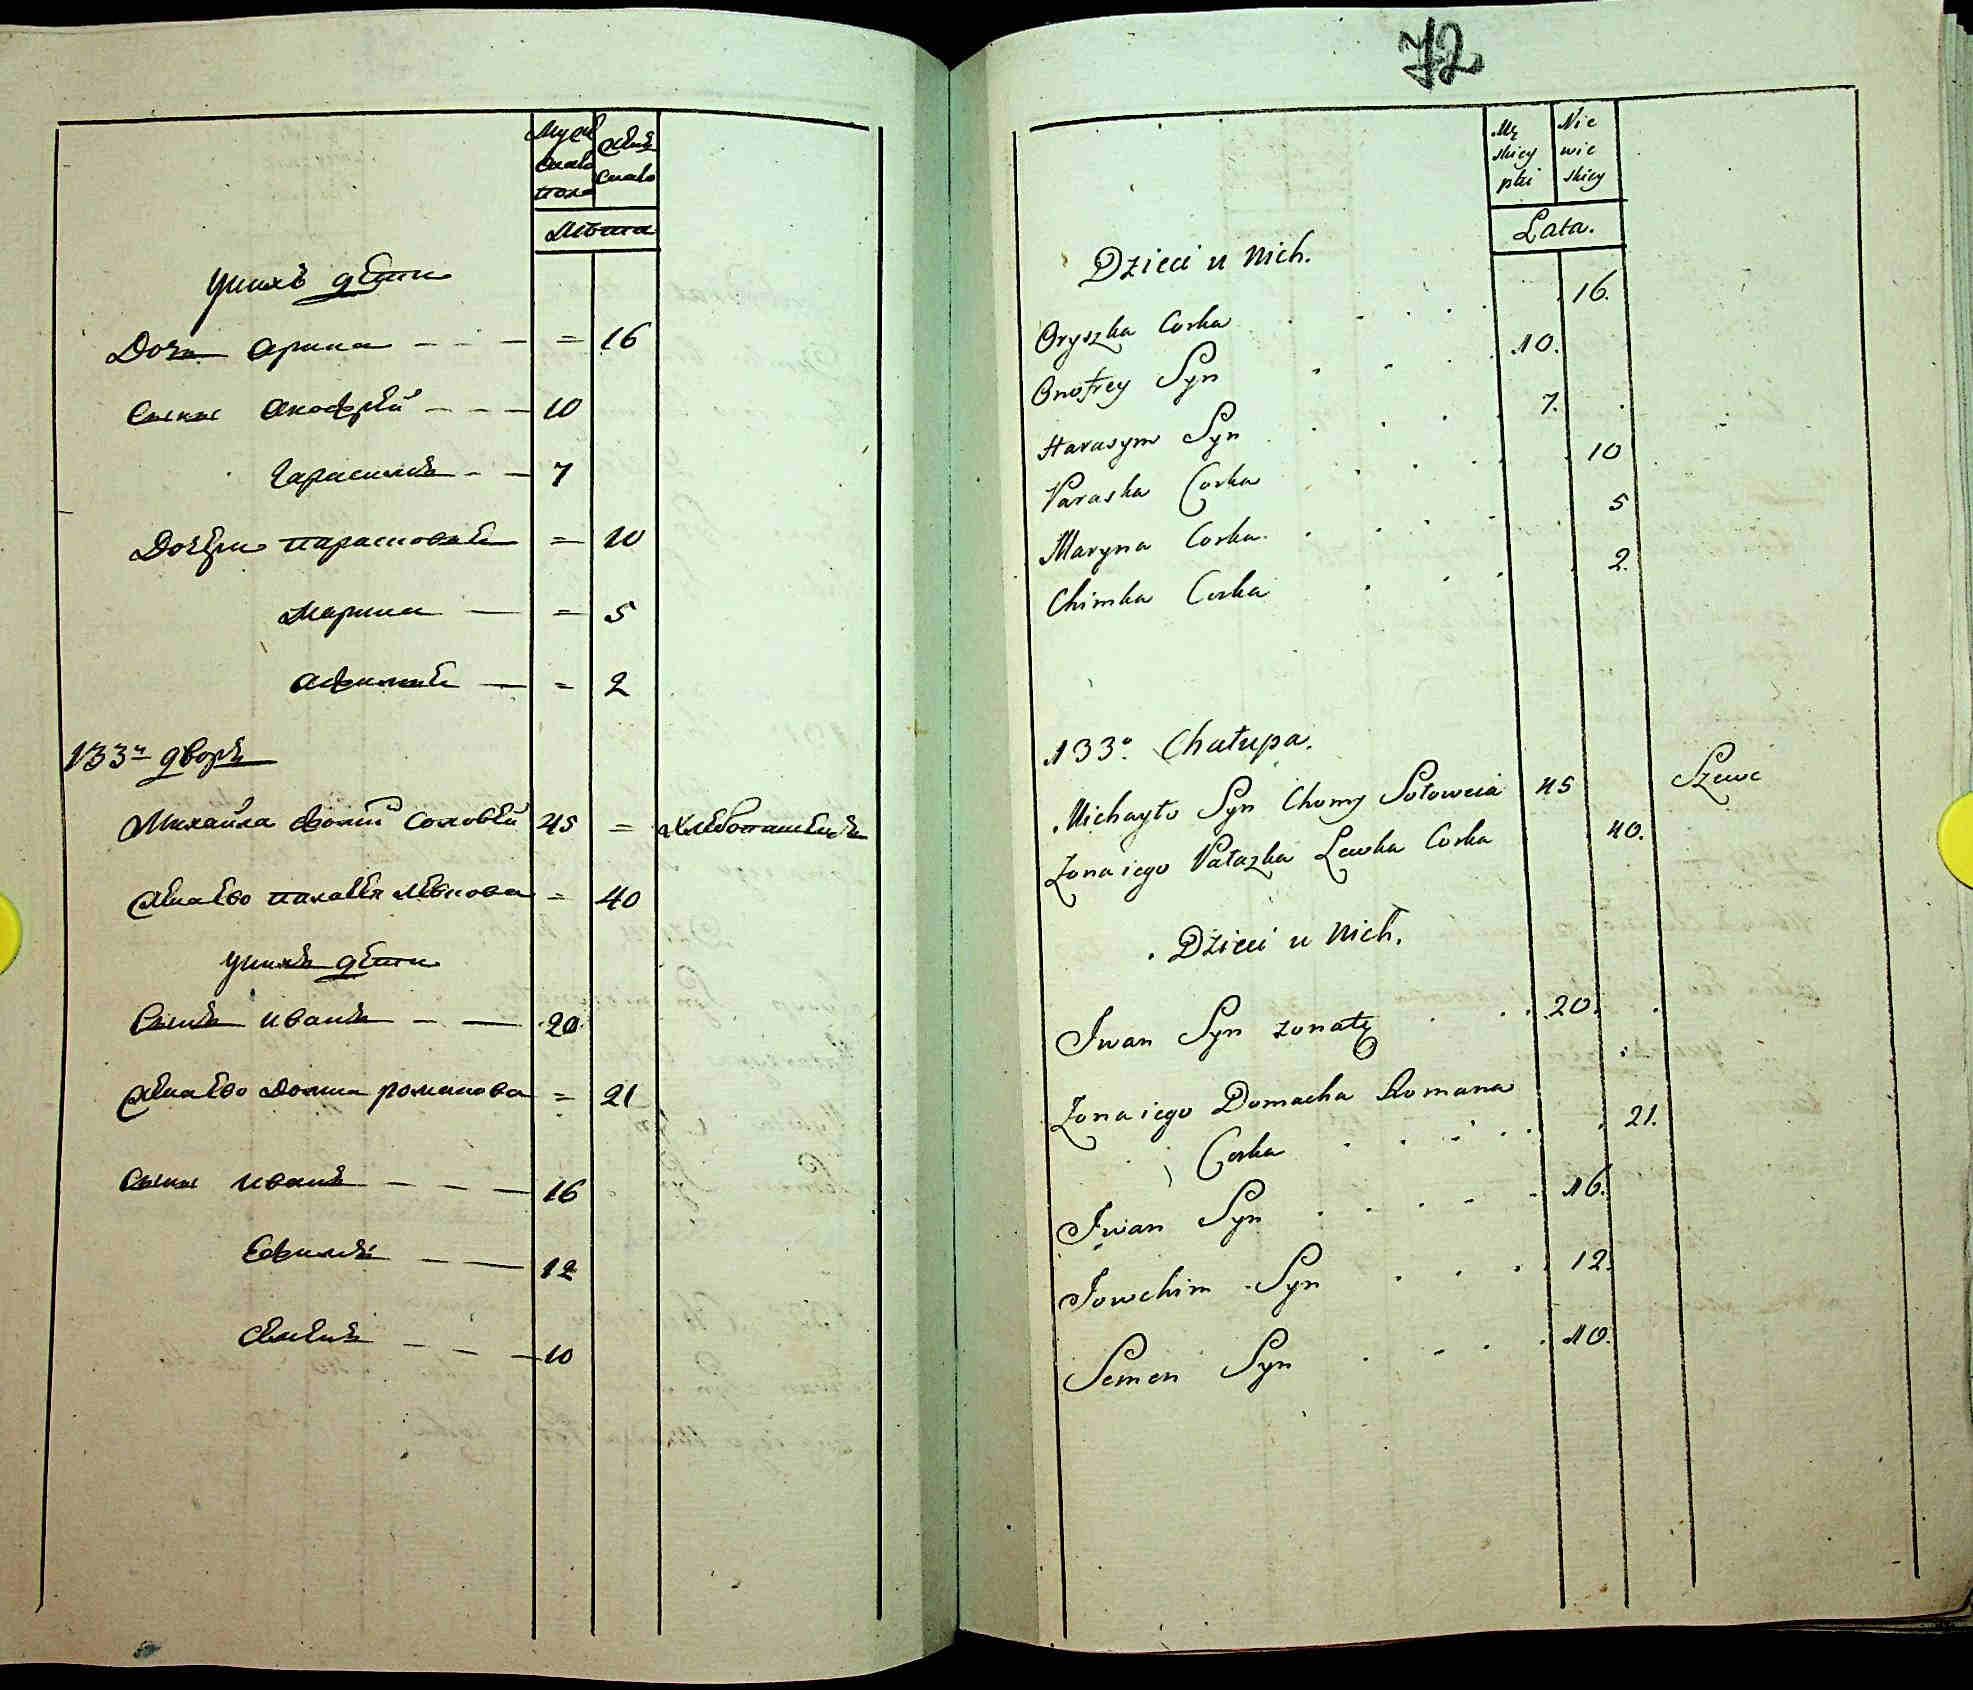 Мужеска пола
Женска
Лѣта
у нихъ дѣти
Дочь Арина - - - = 16
Сыны Анофрей - - - 10
Гарасимъ - - 7
Дочери Парасковья = 10
Марина — = 5
Афимья — = 2
133й дворъ
Михайла Фомин Соловей 45 = хлебопашецъ
Жена ево Палагея Левкова = 40
у нихъ дѣти
Сынъ Иванъ - — 20
Жена ево Домна Романова = 21
Сыны Иванъ - - - 16
Ефимъ - — 12
Семенъ - - - 10
72
Mę skiey płci
Nie wie skiey
Lata.
Dzieci u Nich.
Oryszka Corka . . . . 16.
Onofrey Syn . . . 10.
Harasym Syn . . . 7.
Paraska Corka . . . 10
Maryna Corka . . . . 5
Chimka Corka . . . 2.
133° Chałupa.
Michayło Syn Chomy Sołoweia 45 Szewc
Żona iego Pałazka Lewka Corka 40.
Dzieci u Nich.
Iwan Syn żonaty . . . 20.
Żona iego Domacha Romana
Corka . . . . . 21.
Iwan Syn . . . . 16.
Jowchim Syn . . . 12.
Semen Syn . . . . 10.